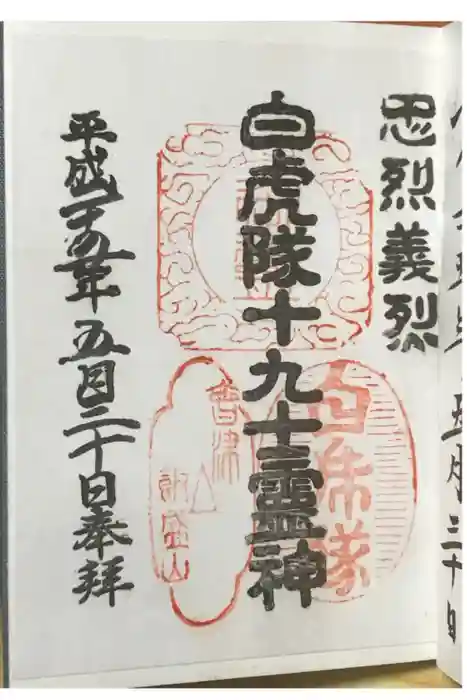 忠烈義烈
白虎隊十九士靈神
白虎隊
會津
飯盛山
平成二十五年五月二十日奉拝